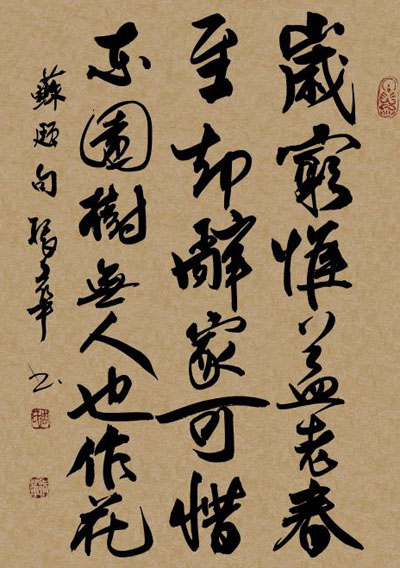 歲窮惟益老春
至却辭家可惜
东園樹無人也作花
蘇頲句 书